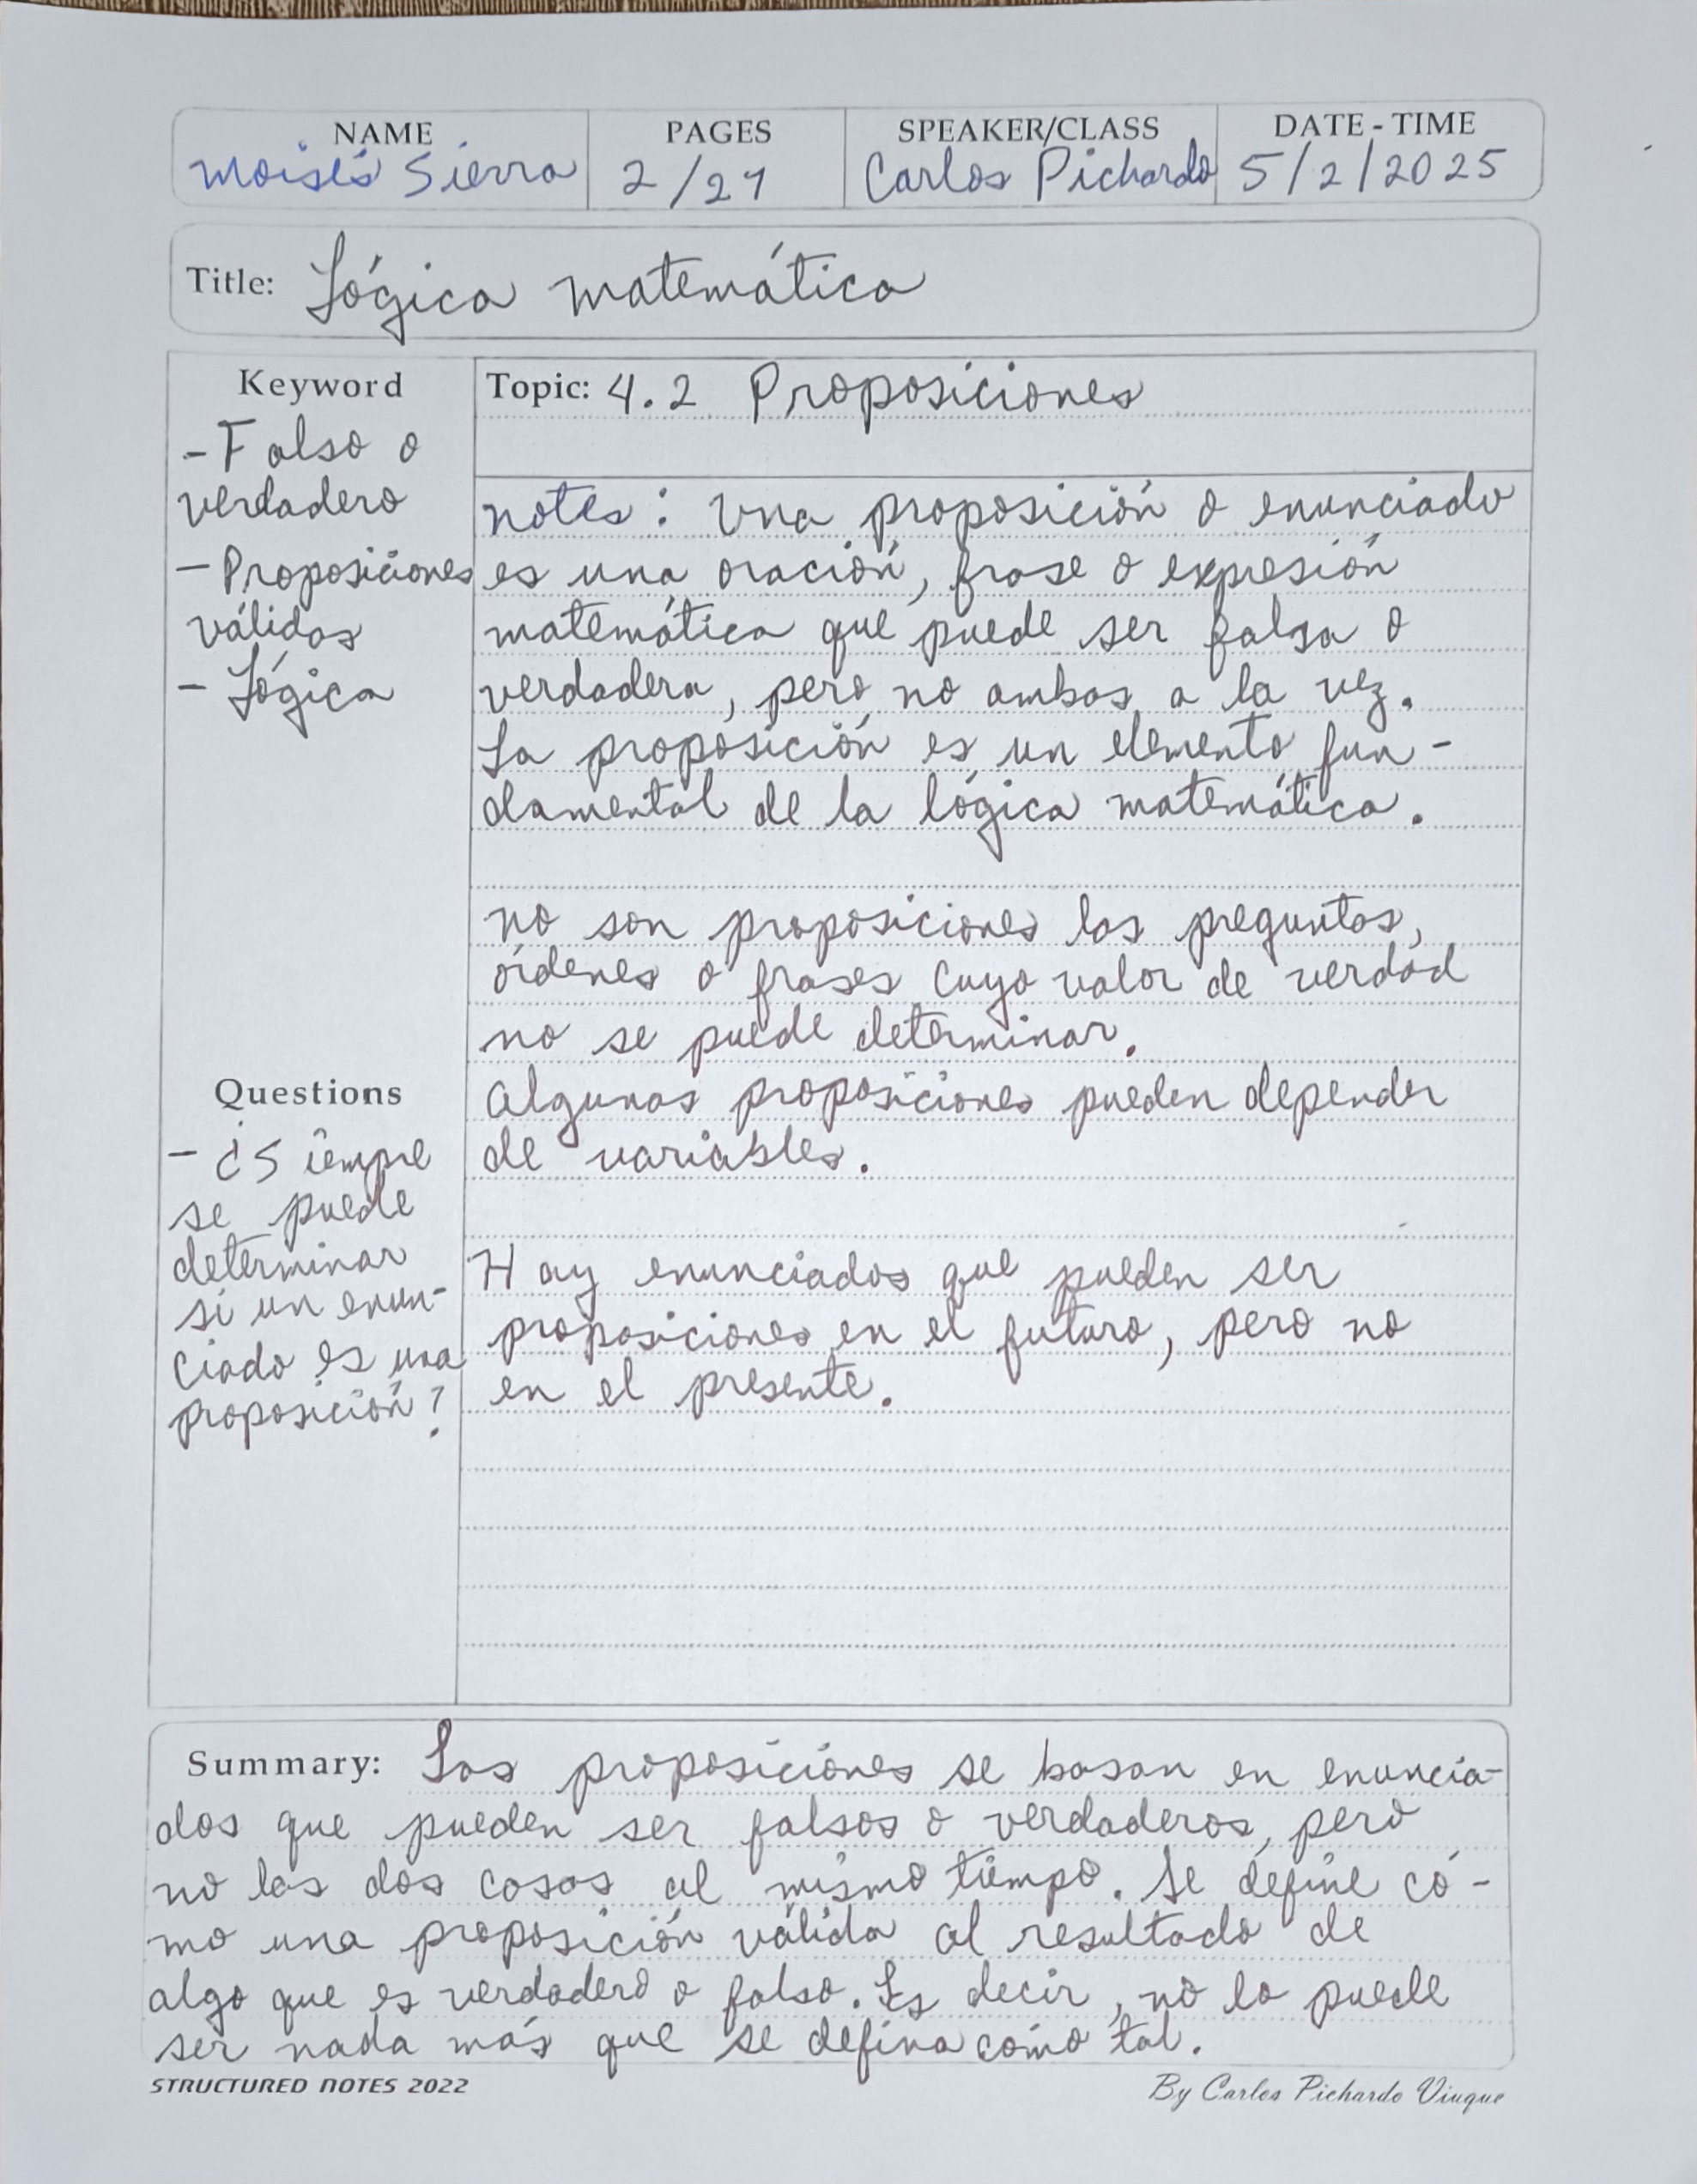 NAME PAGES SPEAKER/CLASS DATE-TIME
Moisés Sierra 2/21 Carlos Pichardo 5/2/2025
Title: Lógica matemática
Keyword
- Falso o
verdadero
- Proposiciones
válidas
- Lógica
Questions
- ¿Siempre
se puede
determinar
si un enun-
ciado es una
proposición?
Topic: 4.2 Proposiciones
notes: Una proposición o enunciado
es una oración, frase o expresión
matemática que puede ser falsa o
verdadera, pero no ambas a la vez.
La proposición es un elemento fun-
damental de la lógica matemática.
no son proposiciones las preguntas,
órdenes o frases cuyo valor de verdad
no se puede determinar.
Algunas proposiciones pueden depender
de variables.
Hay enunciados que pueden ser
proposiciones en el futuro, pero no
en el presente.
Summary: Las proposiciones se basan en enuncia-
dos que pueden ser falsos o verdaderos, pero
no las dos cosas al mismo tiempo. Se define có-
mo una proposición válida al resultado de
algo que es verdadero o falso. Es decir, no lo puede
ser nada más que se defina como tal.
STRUCTURED NOTES 2022
By Carlos Pichardo Viuque